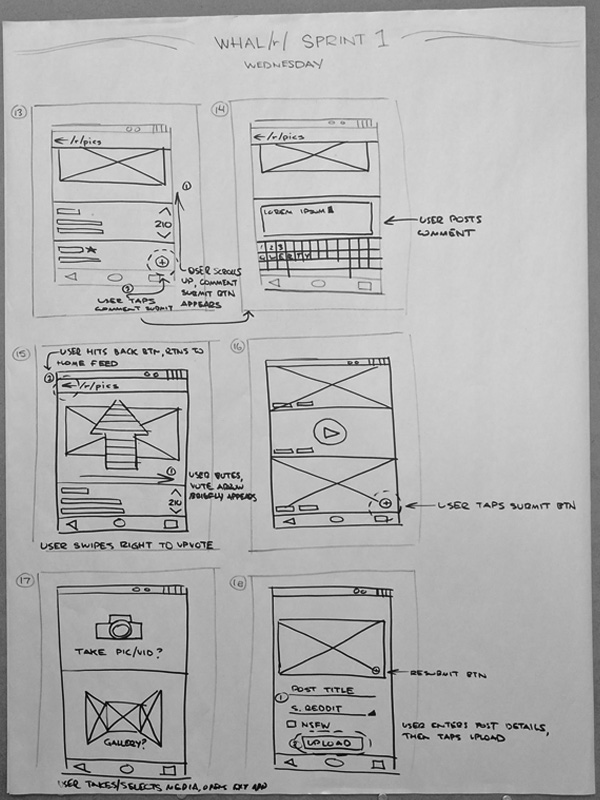 WHAL/r/ SPRINT 1
WEDNESDAY
13
←/r/pics
210
1
USER SCROLLS
UP, COMMENT
SUBMIT BTN
APPEARS
2
USER TAPS
COMMENT SUBMIT
14
←/r/pics
LOREM IPSUM
1 2 3
Q W E R T Y
USER POSTS
COMMENT
15
USER HITS BACK BTN, RTNS TO
HOME FEED
2
←/r/pics
1
USER
VOTE ARROW
BRIEFLY APPEARS
210
USER SWIPES RIGHT TO UPVOTE
16
USER TAPS SUBMIT BTN
17
TAKE PIC/VID?
GALLERY?
USER TAKES/SELECTS MEDIA, OPENS EXT APP
18
RESUBMIT BTN
1
POST TITLE
S. REDDIT
NSFW
2
UPLOAD
USER ENTERS POST DETAILS,
THEN TAPS UPLOAD